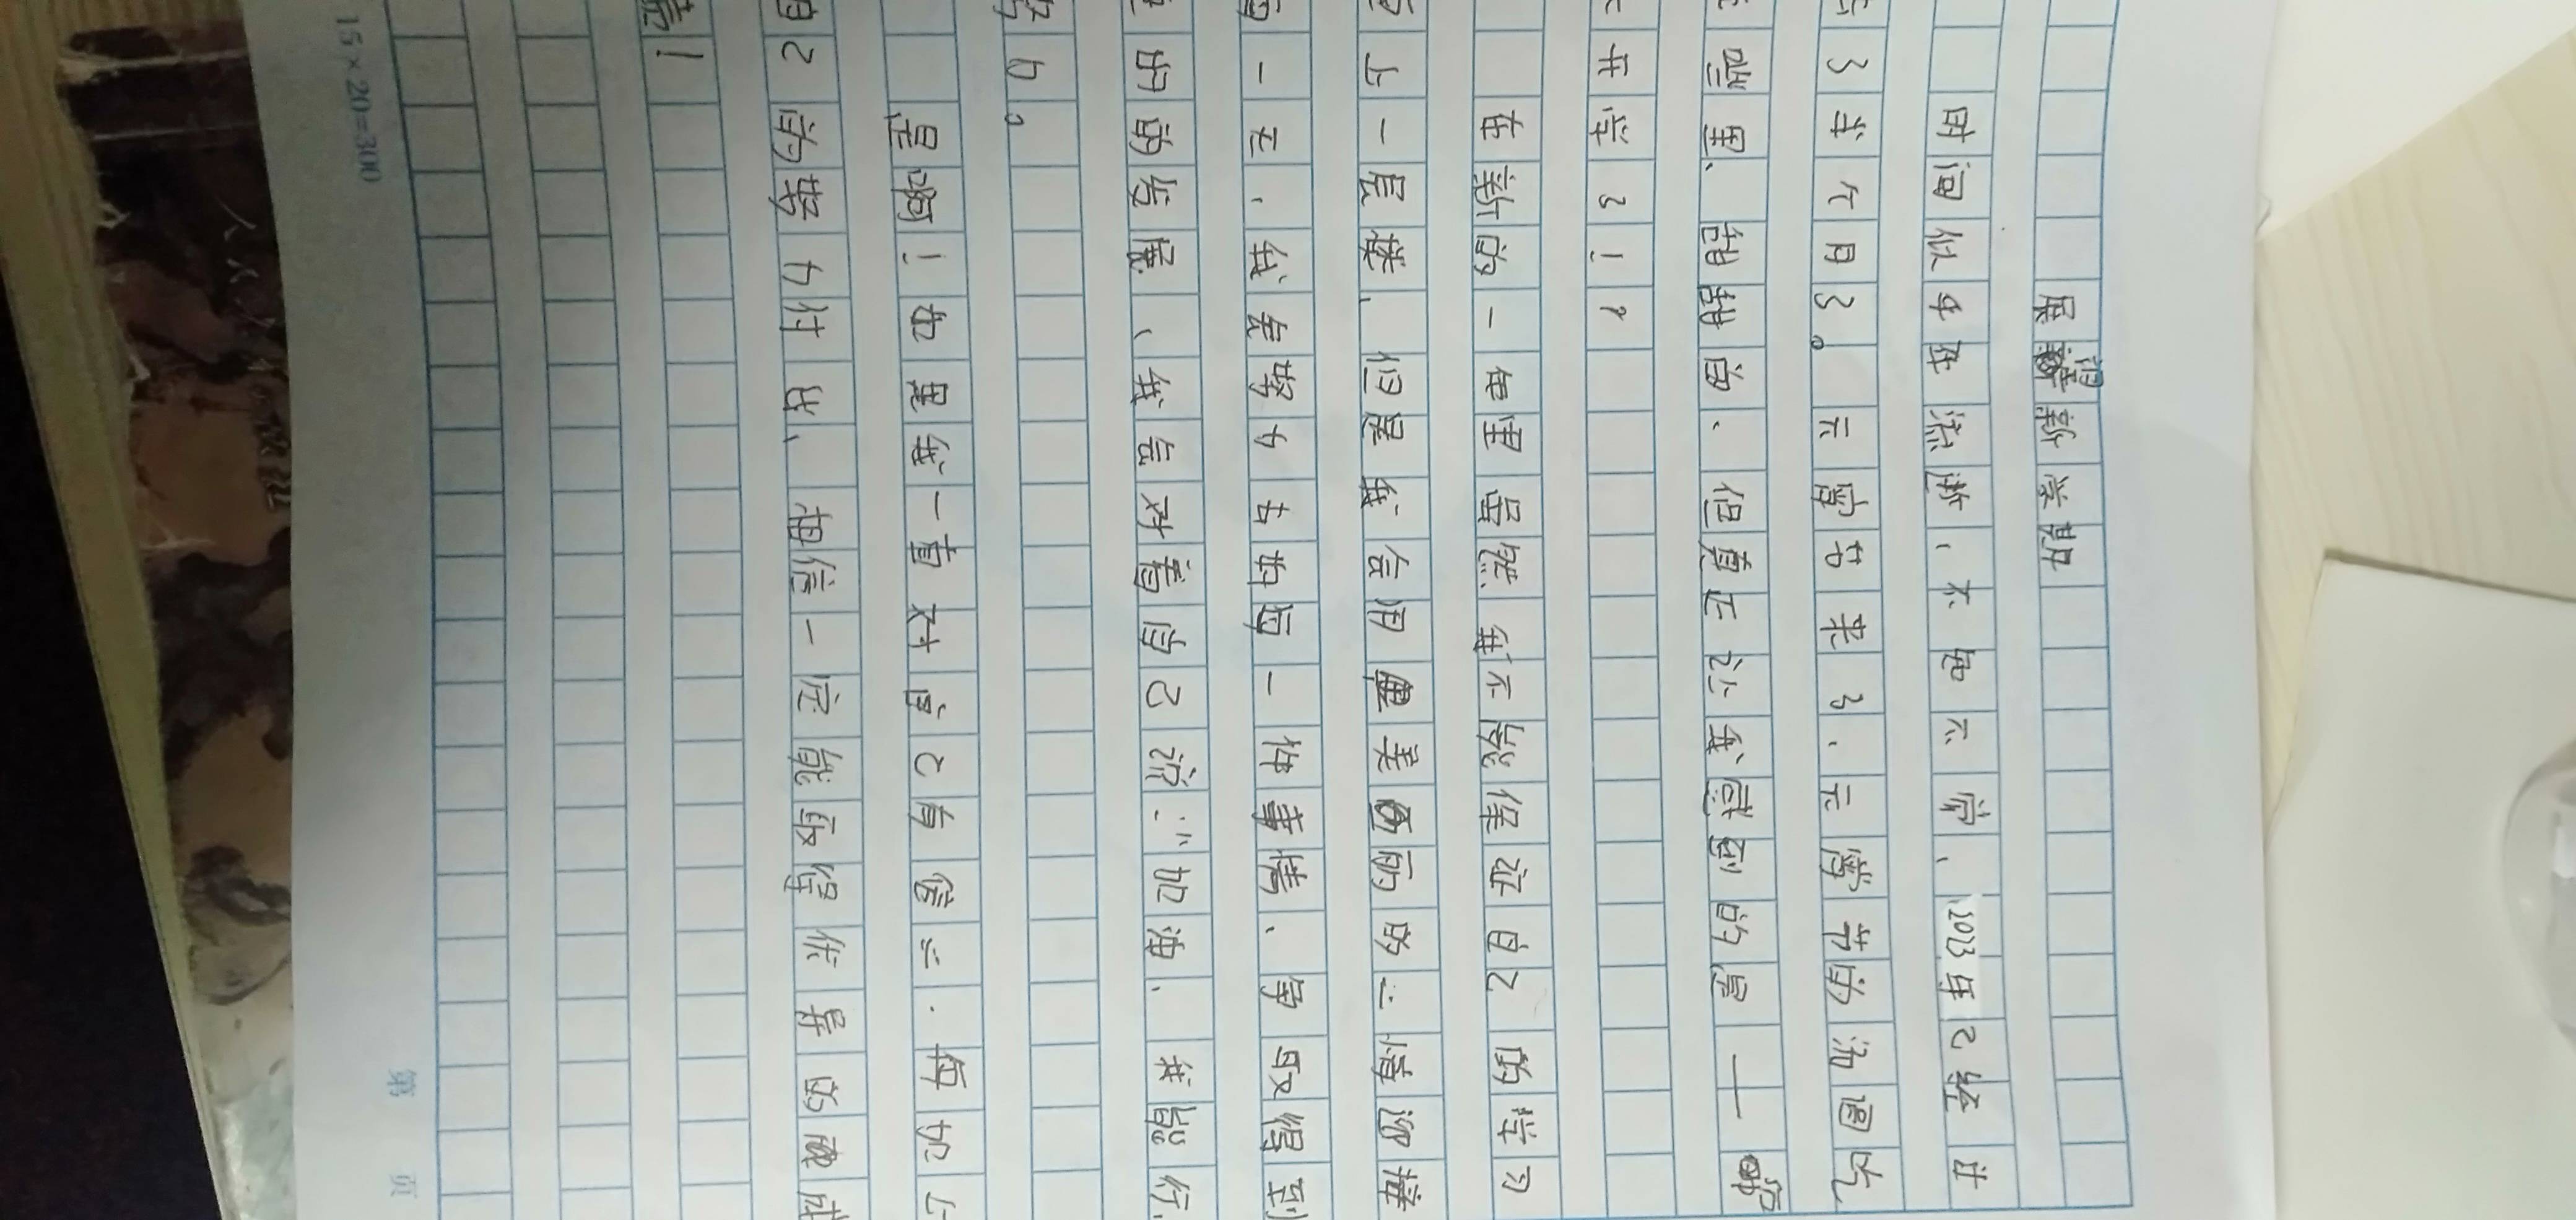 展望新学期
时间似乎在流逝，不知不觉，2023年已经过
去了半个月了。元宵节来了，元宵节的汤圆吃
在嘴里，甜甜的，但真正让我感到的是——
要开学了！？
在新的一年里虽然我不能保证自己的学习
更上一层楼，但是我会用更美的的：精彩
每一天，我会努力去的每一件事情，争取得到
更好的发展、我会对着自己说："加油，我能行，
努力。
是啊！如果我一直对自己有信心，再加上
自己的努力付出，相信一定能取得优异的成
绩！
15×20=300
第 页